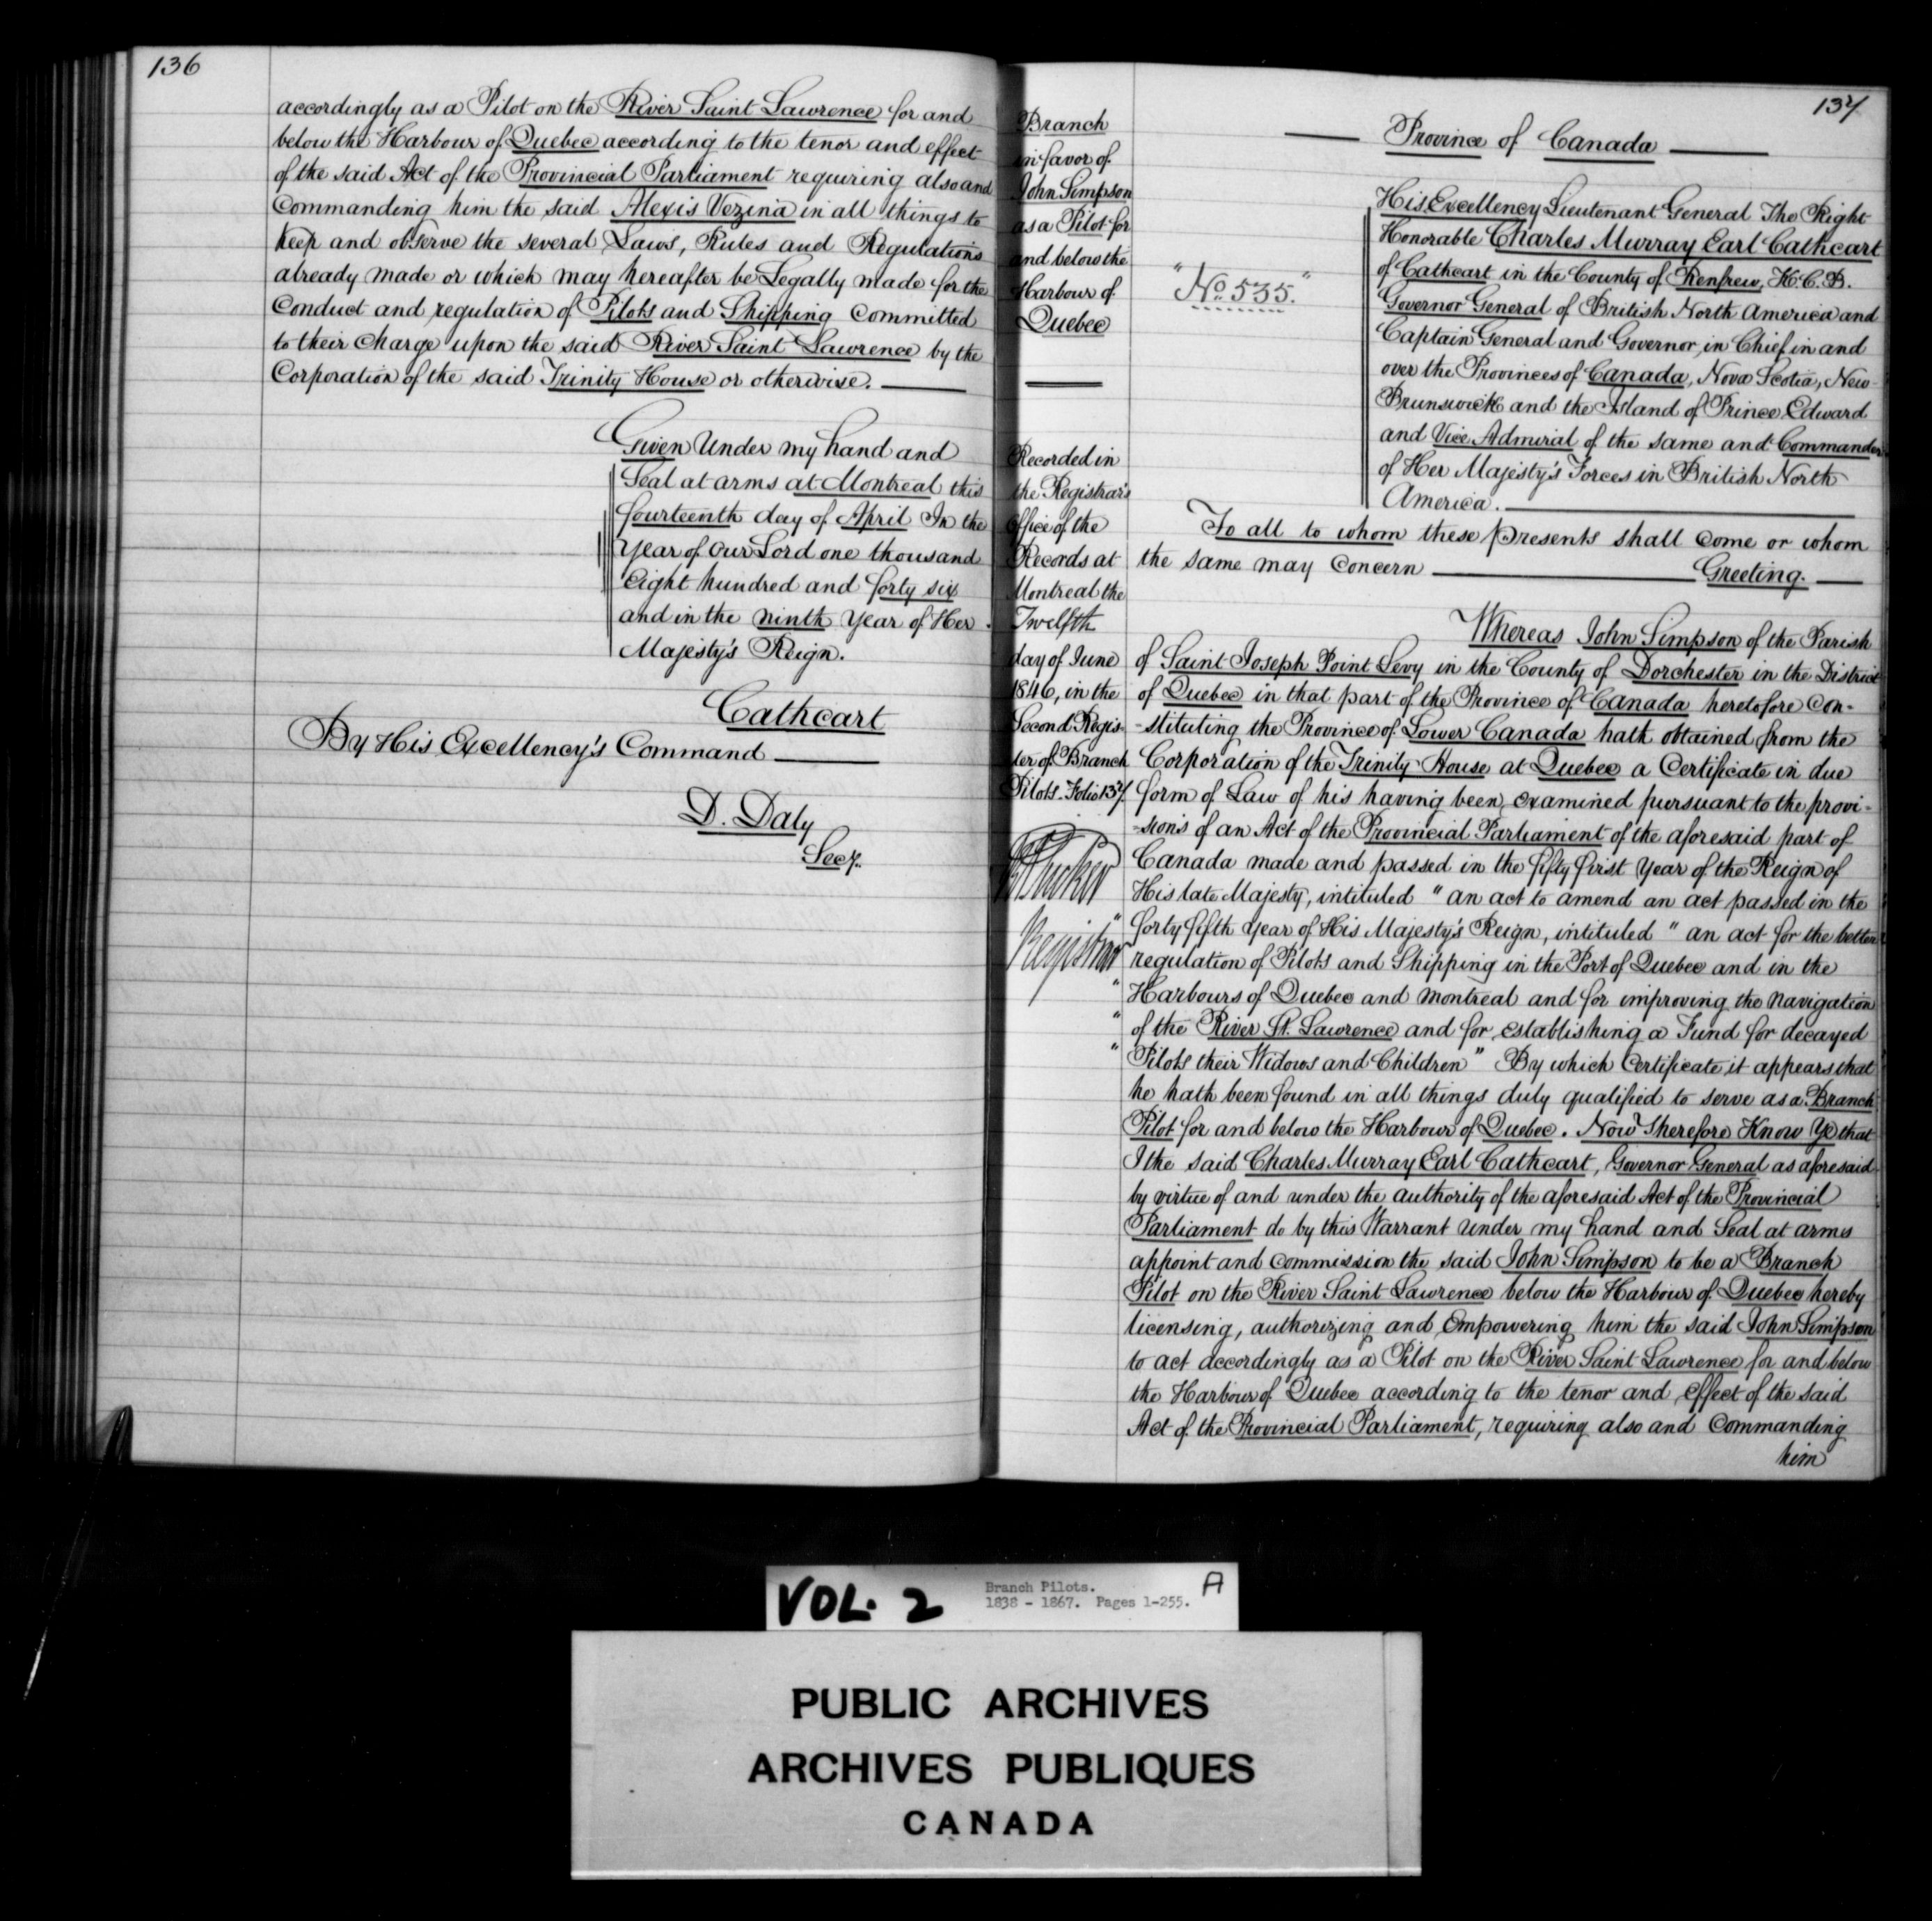 136
accordingly as a Pilot on the River Saint Lawrence for and
below the Harbour of Quebec according to the tenor and effect
of the said Act of the Provincial Parliament requiring also and
Commanding him the said Alexis Vezina in all things to
keep and observe the several Laws, Rules and Regulations
already made or which may hereafter be Legally made for the
Conduct and regulation of Pilots and Shipping Committed
to their Charge upon the said River Saint Lawrence by the
Corporation of the said Trinity House or otherwise.
Given Under my hand and
Seal at arms at Montreal this
fourteenth day of April In the
Year of Our Lord one thousand
Eight hundred and forty six
and in the ninth Year of Her
Majesty's Reign.
Cathcart
By His Excellency's Command
D. Daly
Secy.
Branch
in favor of
John Simpson
as a Pilot for
and below the
Harbour of
Quebec
Recorded in
the Registrar's
Office of the
Records at
Montreal the
Twelfth
day of June
1846, in the
Second Regis-
ter of Branch
Pilots. Folio 137.
Tucker
Registrar
137
Province of Canada
"No. 535."
His Excellency Lieutenant General The Right
Honorable Charles Murray Earl Cathcart
of Cathcart in the County of Renfrew, K.C.B.
Governor General of British North America and
Captain General and Governor in Chief in and
over the Provinces of Canada, Nova Scotia, New
Brunswick and the Island of Prince Edward
and Vice Admiral of the same and Commander
of Her Majesty's Forces in British North
America.
To all to whom these presents shall come or whom
the same may concern Greeting.
Whereas John Simpson of the Parish
of Saint Joseph Point Levy in the County of Dorchester in the District
of Quebec in that part of the Province of Canada heretofore Con-
-stituting the Province of Lower Canada hath obtained from the
Corporation of the Trinity House at Quebec a Certificate in due
form of Law of his having been examined pursuant to the provi-
-sions of an Act of the Provincial Parliament of the aforesaid part of
Canada made and passed in the fifty first Year of the Reign of
His late Majesty, intituled " an act to amend an act passed in the
" forty fifth Year of His Majesty's Reign, intituled " an act for the better
regulation of Pilots and Shipping in the Port of Quebec and in the
" Harbours of Quebec and Montreal and for improving the Navigation
" of the River St. Lawrence and for establishing a Fund for decayed
" Pilots their Widows and Children" By which Certificate it appears that
he hath been found in all things duly qualified to serve as a Branch
Pilot for and below the Harbour of Quebec. Now Therefore Know Ye that
I the said Charles Murray Earl Cathcart, Governor General as aforesaid
by virtue of and under the authority of the aforesaid Act of the Provincial
Parliament do by this Warrant Under my hand and Seal at arms
appoint and commission the said John Simpson to be a Branch
Pilot on the River Saint Lawrence below the Harbour of Quebec hereby
licensing, authorizing and Empowering him the said John Simpson
to act accordingly as a Pilot on the River Saint Lawrence for and below
the Harbour of Quebec according to the tenor and Effect of the said
Act of the Provincial Parliament, requiring also and Commanding
him
VOL. 2
Branch Pilots.
1838 - 1867. Pages 1-255.
A
PUBLIC ARCHIVES
ARCHIVES PUBLIQUES
CANADA